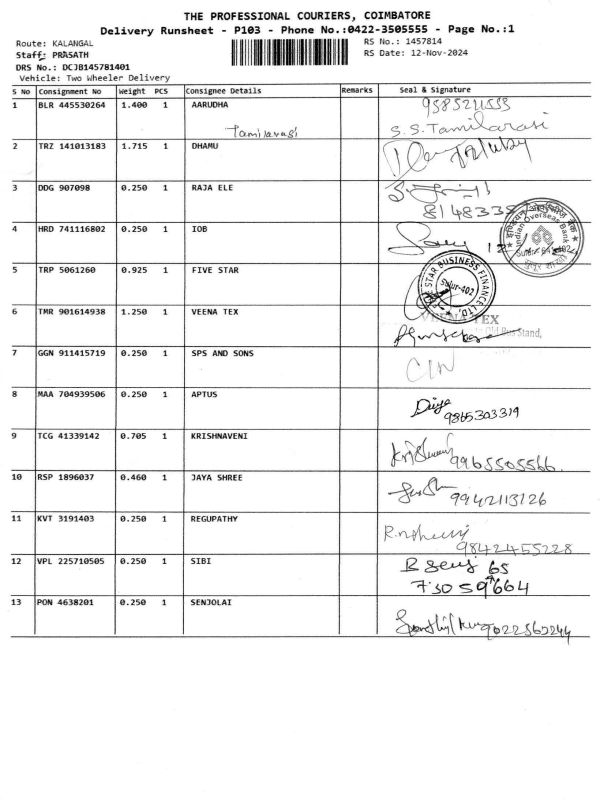 THE PROFESSIONAL COURIERS, COIMBATORE
Delivery Runsheet - P103 - Phone No.:0422-3505555 - Page No.:1
Route: KALANGAL RS No.: 1457814
Staff: PRASATH RS Date: 12-Nov-2024
DRS No.: DCJB145781401
Vehicle: Two Wheeler Delivery
S No Consignment No Weight PCS Consignee Details Remarks Seal & Signature
1 BLR 445530264 1.400 1 AARUDHA
Tamilarasi S.S.Tamilarasi
2 TRZ 141013183 1.715 1 DHAMU
3 DDG 907098 0.250 1 RAJA ELE
4 HRD 741116802 0.250 1 IOB
Indian Overseas Bank
5 TRP 5061260 0.925 1 FIVE STAR
STAR BUSINESS FINANCE LTD.
Sulur-402
6 TMR 901614938 1.250 1 VEENA TEX
VEENA TEX
Old Bus Stand,
7 GGN 911415719 0.250 1 SPS AND SONS
8 MAA 704939506 0.250 1 APTUS
Divya
9865303319
9 TCG 41339142 0.705 1 KRISHNAVENI
9965505566
10 RSP 1896037 0.460 1 JAYA SHREE
9942113126
11 KVT 3191403 0.250 1 REGUPATHY
9842455228
12 VPL 225710505 0.250 1 SIBI
13 PON 4638201 0.250 1 SENJOLAI